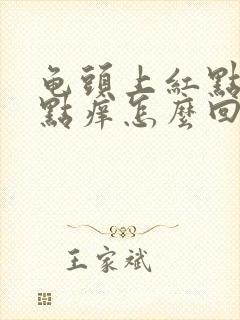 龟頭上紅點
點痒怎麼回
王家斌